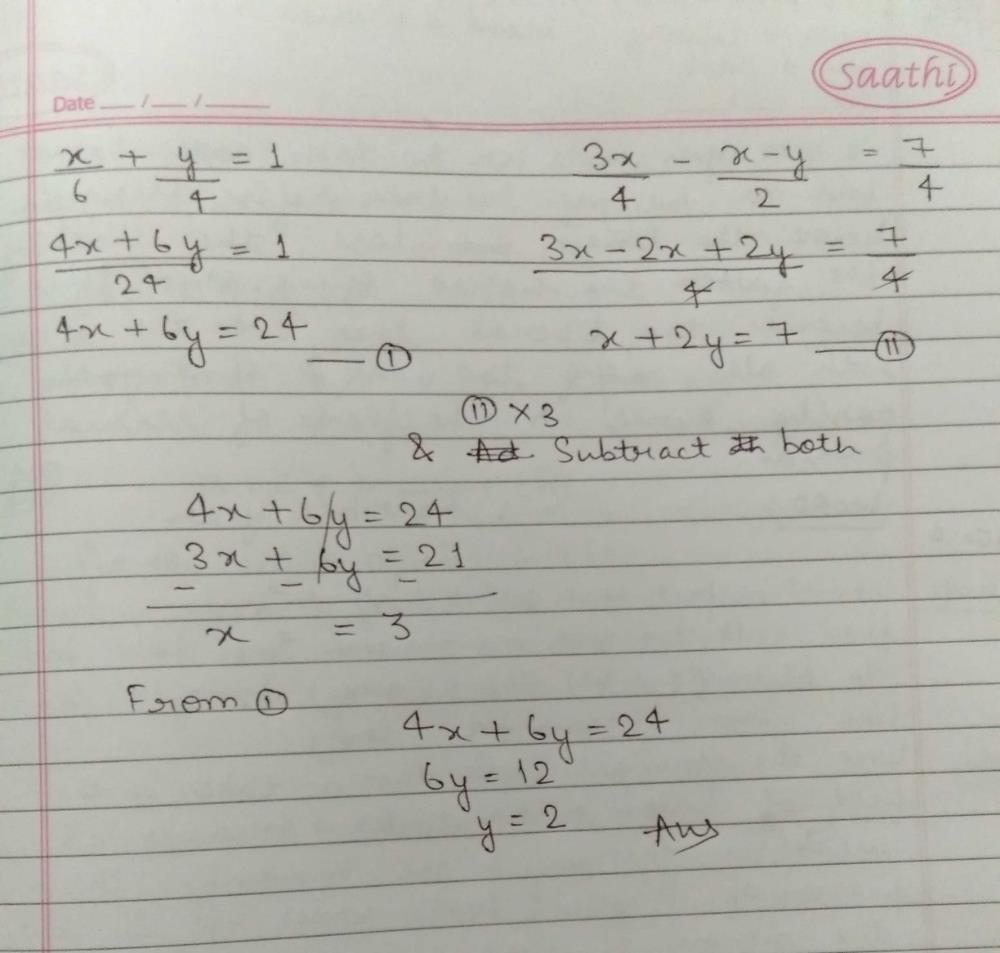 Saathi
Date __/__/____
x/6 + y/4 = 1    3x/4 - (x-y)/2 = 7/4
(4x + 6y)/24 = 1    (3x - 2x + 2y)/4 = 7/4
4x + 6y = 24 —— (I)    x + 2y = 7 —— (II)
(II) × 3
& Ad Subtract th both
4x + 6y = 24
3x + 6y = 21
- - -
x = 3
From (I)
4x + 6y = 24
6y = 12
y = 2    Ans